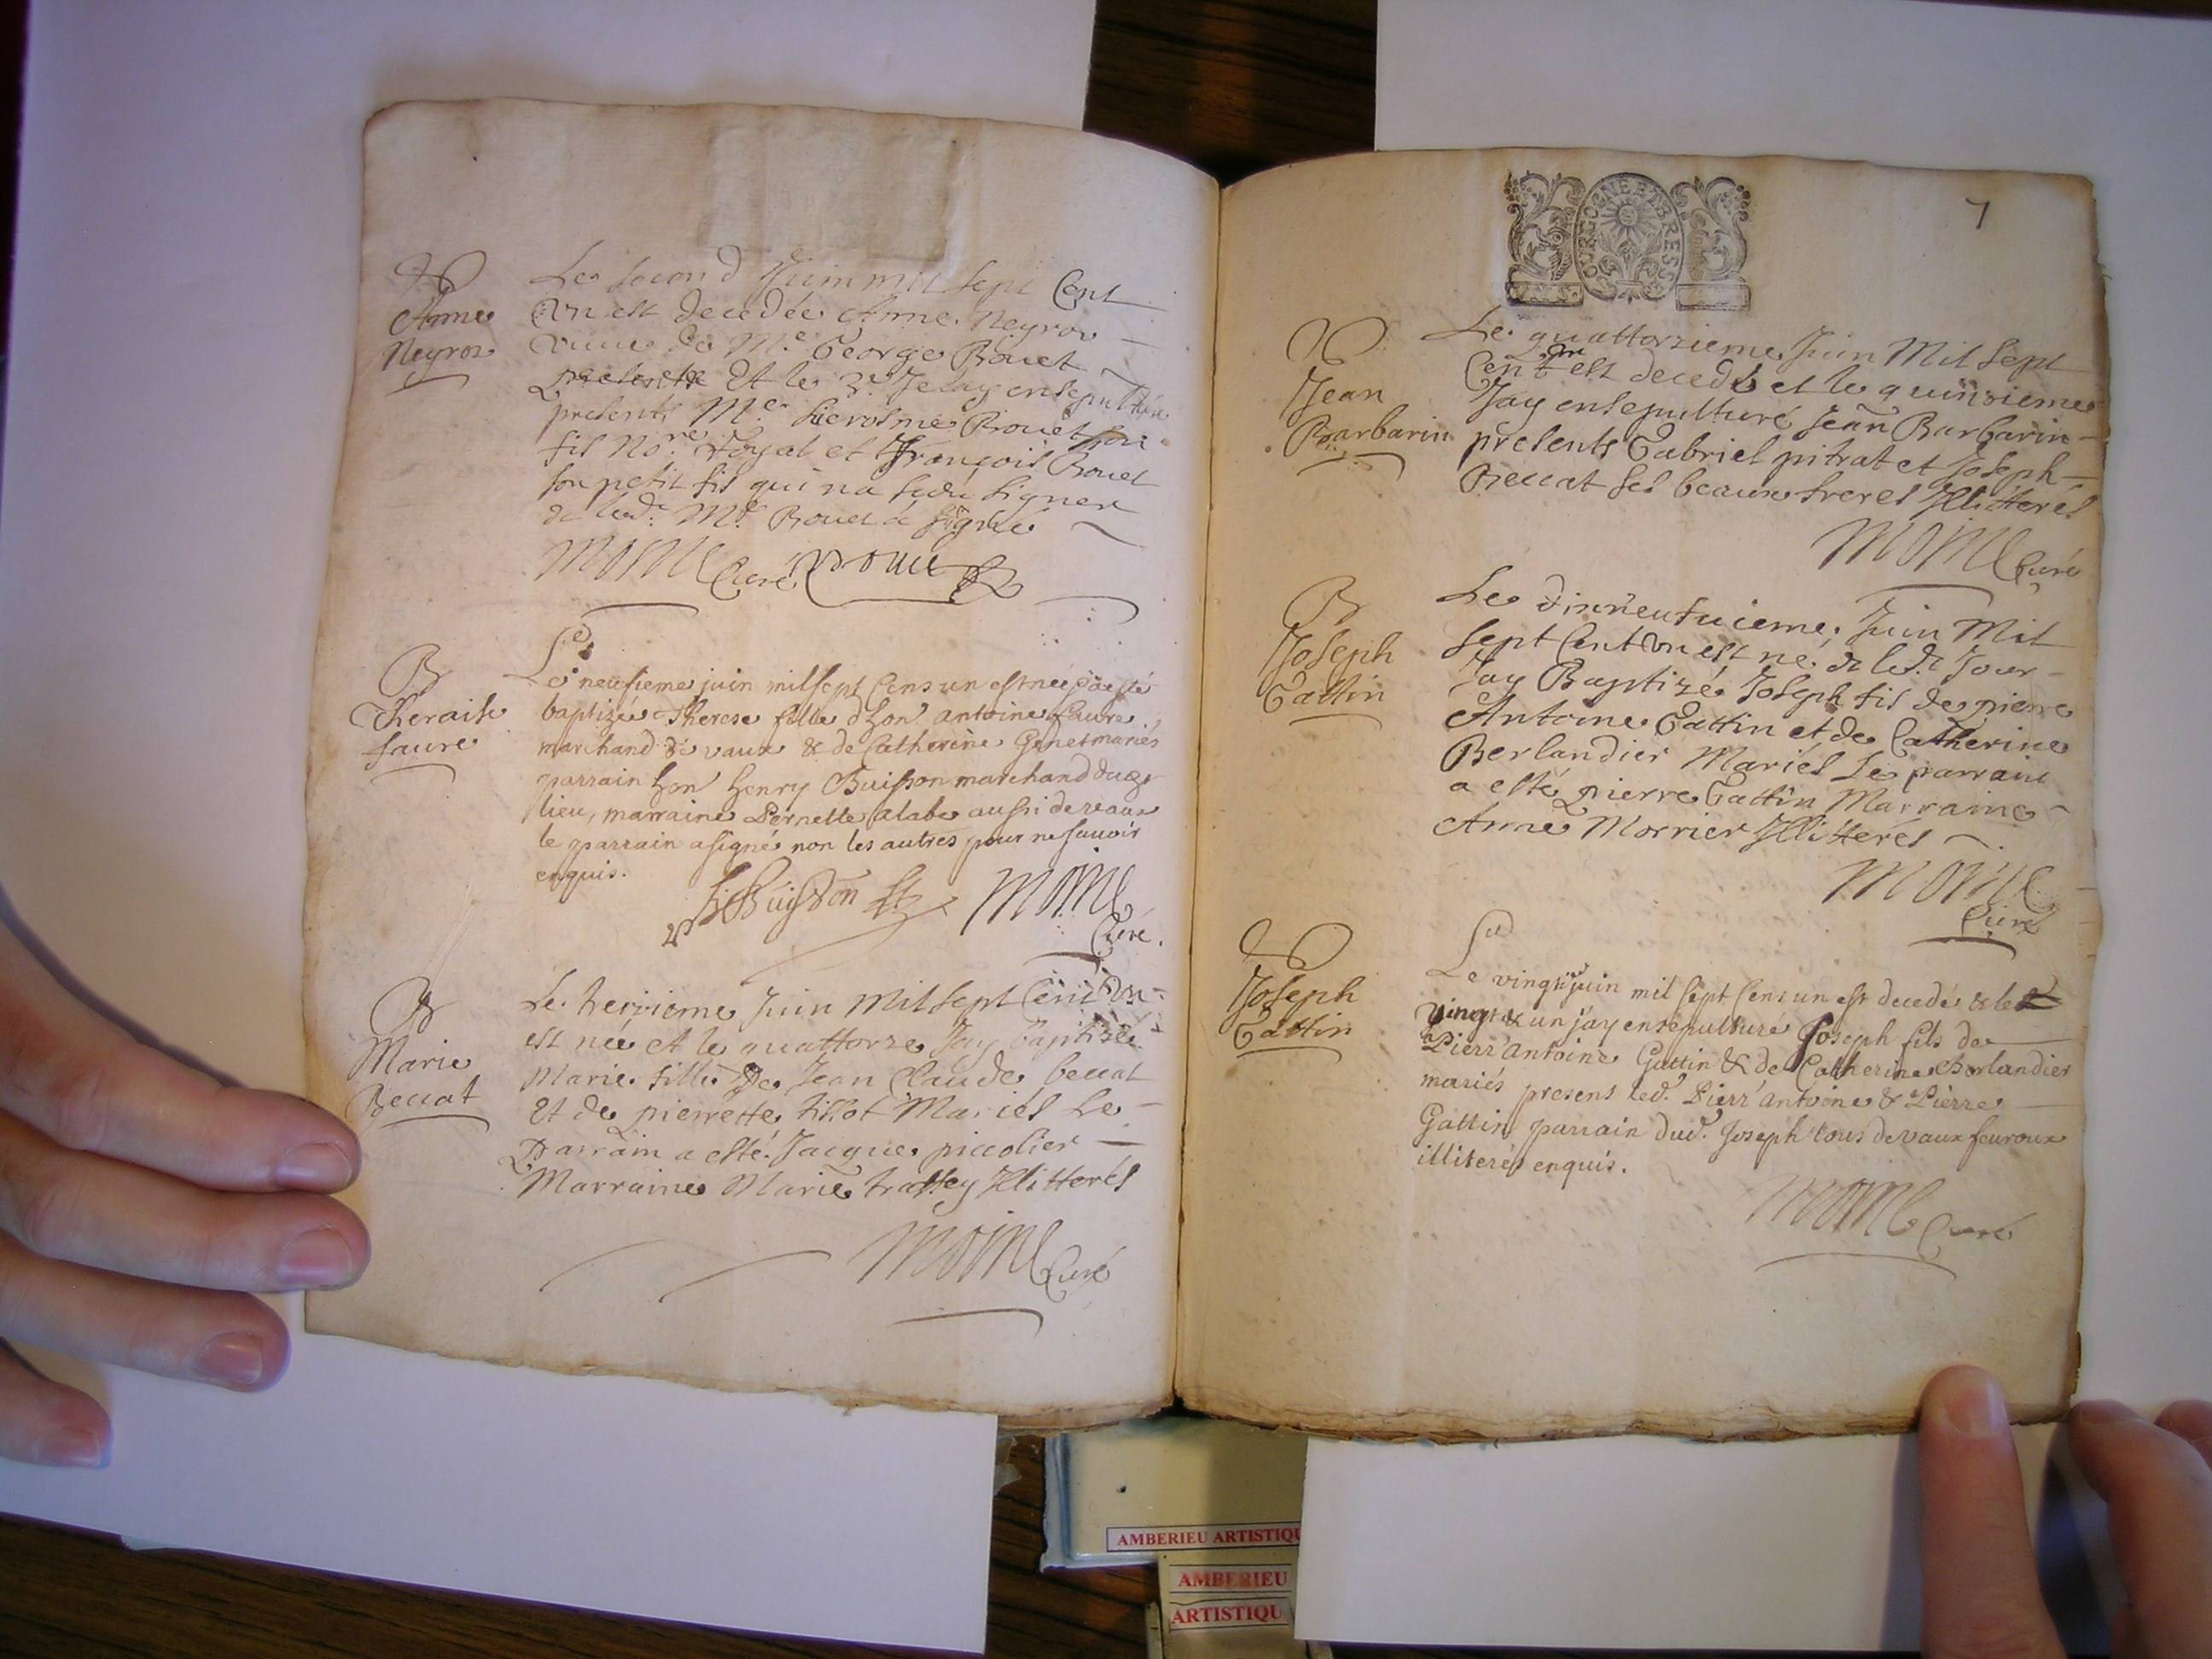 Anne
Neyroz
Le second Juin mil sept Cent
Vn est decedée Anne Neyroz
veuve de Me George Bouet
Et le 3e Je lay ensepulturée
presents Me hierosme Bouet son
fils Nore Royal et François Bouet
son petit fils qui na sceu signer
& led. Me Bouet a signé
Moine Curé Bouet
B
Theraise
faure
Le neufieme juin mil sept Cens un est née & a esté
baptizée Therese fille dhon. antoine faure
marchand de vaux & de Catherine Genet mariés
parrain hon henry Buisson marchand dud.
lieu, marraine Pernette alabe aussi de vaux
le parrain a signé non les autres pour ne sauoir
enquis.
h Buisson Moine
Curé.
B
Marie
Beccat
Le treizieme Juin Mil sept Cent Vn
est née et le quattorze Jay baptizée
Marie fille De Jean Claude beccat
Et de pierrette tillot Mariés Le
Parrain a esté Jacque piccolier
Marraine Marie trassey Illitterés
Moine Curé
7
BOURGOGNE ET BRESSE
Jean
Barbarin
Le quattorzieme Juin Mil sept
Cent Vn est decedé et le quinzieme
Jay ensepulturé Jean Barbarin
presents Gabriel pitrat et Joseph
Beccat ses beaux freres Illitterés
Moine Curé
B
Joseph
Gattin
Le dixneufuieme Juin Mil
sept Cent Vn est né & led. Jour
Jay Baptizé Joseph fils de pierre
Antoine Gattin et de Catherine
Berlandier Mariés Le parrain
a esté pierre Gattin Marraine
Anne Morrier Illitterés
Moine
Curé
Joseph
Gattin
Le vingt juin mil sept Cens un est decedé & le
vingt & un j'ay ensepulturé Joseph fils de
Pierr'antoine Gattin & de Catherine Borlandier
mariés presens led. Pierr'antoine & Pierre
Gattin parrain dud. Joseph tous de vaux feuroux
illiterés enquis.
Moine Curé
AMBERIEU ARTISTIQU
AMBERIEU
ARTISTIQU